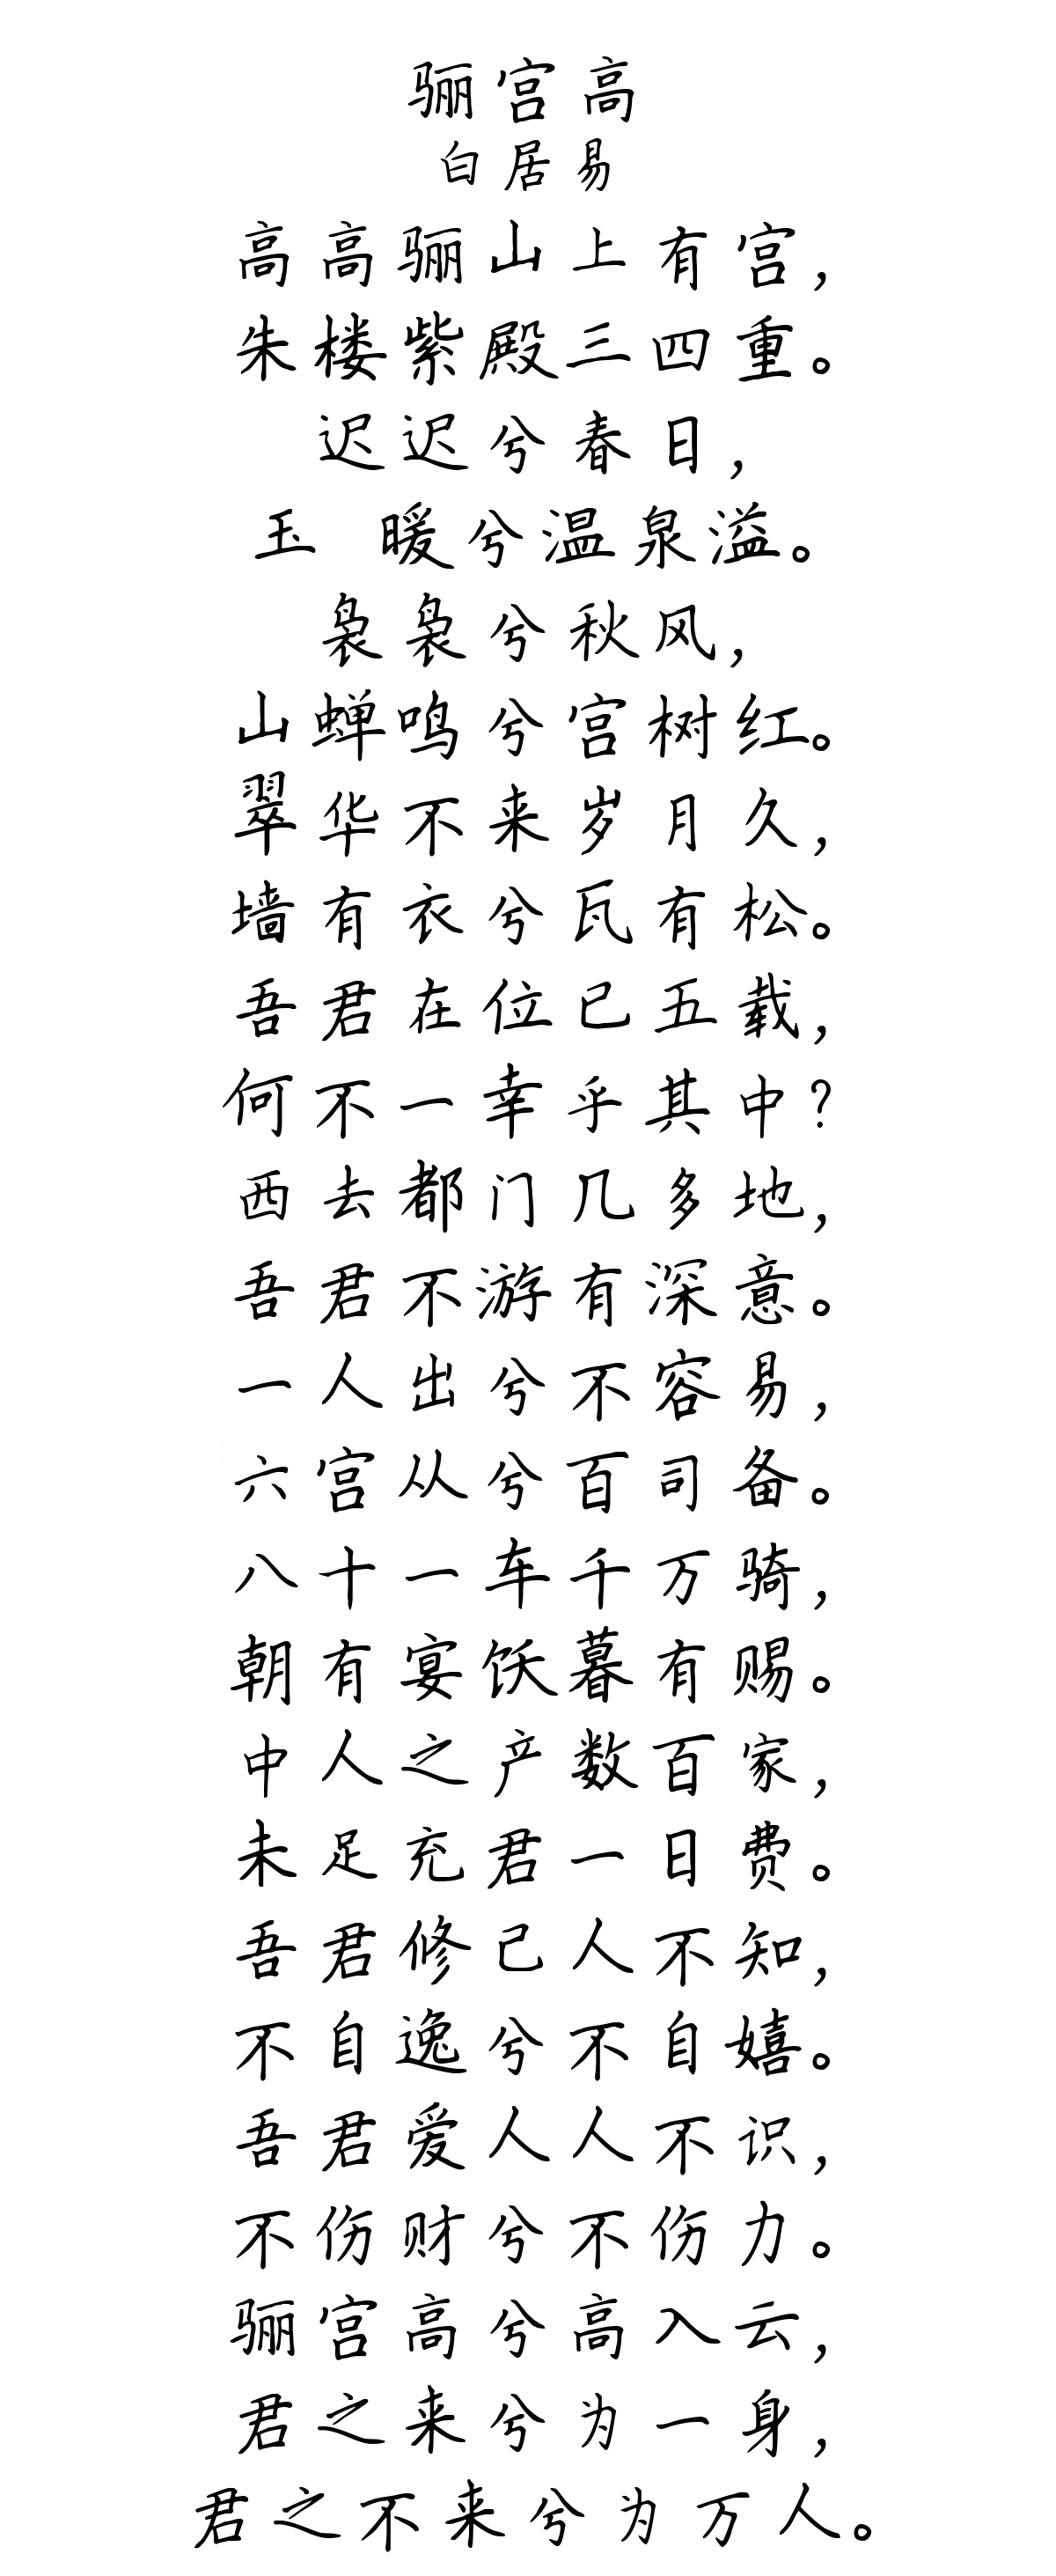 骊宫高
白居易
高高骊山上有宫，
朱楼紫殿三四重。
迟迟兮春日，
玉 暖兮温泉溢。
袅袅兮秋风，
山蝉鸣兮宫树红。
翠华不来岁月久，
墙有衣兮瓦有松。
吾君在位已五载，
何不一幸乎其中？
西去都门几多地，
吾君不游有深意。
一人出兮不容易，
六宫从兮百司备。
八十一车千万骑，
朝有宴饫暮有赐。
中人之产数百家，
未足充君一日费。
吾君修己人不知，
不自逸兮不自嬉。
吾君爱人人不识，
不伤财兮不伤力。
骊宫高兮高入云，
君之来兮为一身，
君之不来兮为万人。